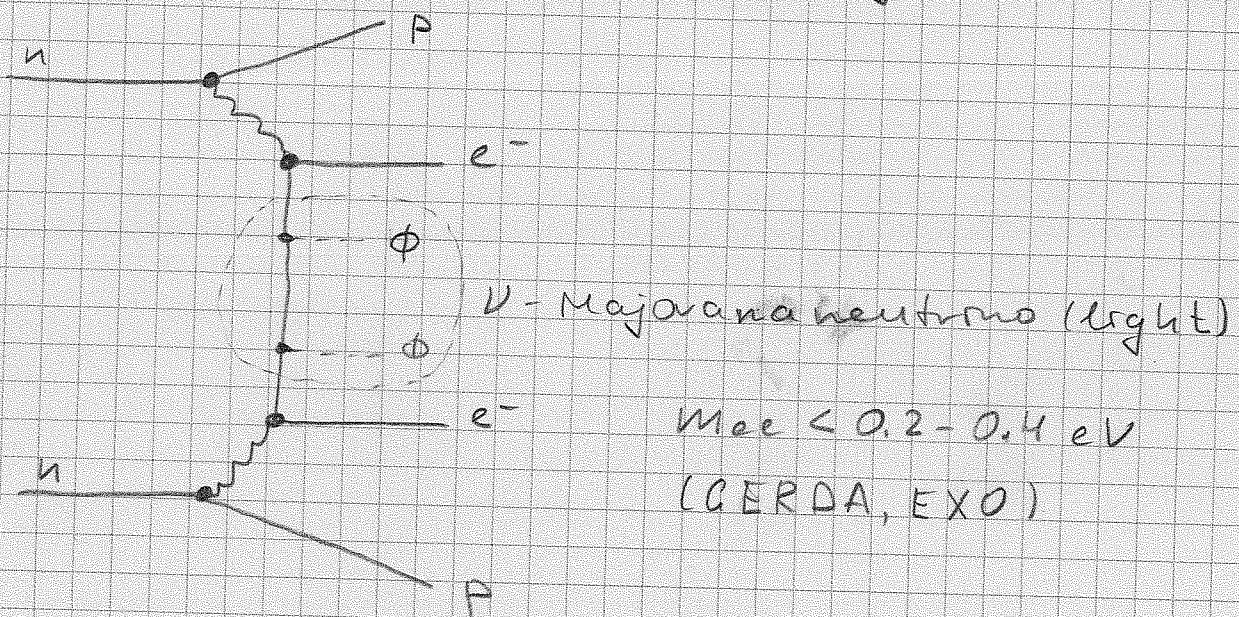 p
n
e⁻
ϕ
ν - Majorana neutrino (light)
ϕ
e⁻
mee < 0.2 - 0.4 eV
n
(GERDA, EXO)
p